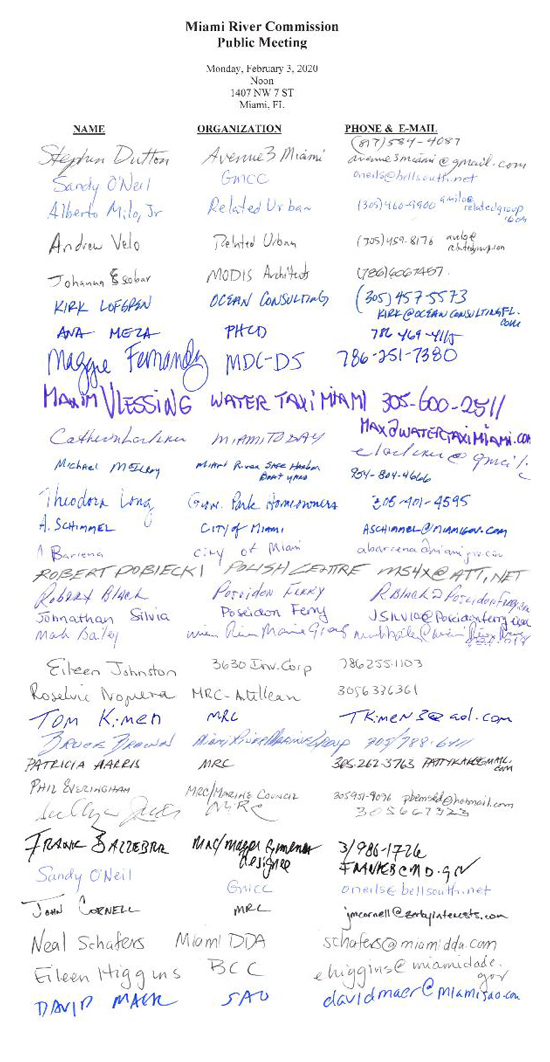 Miami River Commission
Public Meeting
Monday, February 3, 2020
Noon
1407 NW 7 ST
Miami, FL
NAME ORGANIZATION PHONE & E-MAIL
(817) 584-4087
Stephen Dutton Avenue 3 Miami avenue3miami@gmail.com
Sandy O'Neil GMCC oneils@bellsouth.net
Alberto Milo, Jr Related Urban (305) 460-9900 amilo@
relatedgroup
.com
Andrew Velo Related Urban (305) 459-8176 avelo@
relatedgroup.com
Johanna Escobar MODIS Architects (786)
KIRK LOFGREN OCEAN CONSULTING (305) 457-5573
KIRK@OCEANCONSULTINGFL.
com
ANA MEZA PHCD 786-469-4115
Maggie Fernandez MDC-DS 786-251-7380
MAXIM VLESSING WATER TAXI MIAMI 305-600-2511
MAX@WATERTAXIMIAMI.com
MIAMI TODAY
Michael McElroy Miami River Safe Harbor 954-804-4666
Boat yard
Theodora Long Grv. Park Homeowners 305-401-4595
A. SCHIMMEL CITY of MIAMI ASCHIMMEL@MIAMIGOV.COM
Barcena city of Miami abarcena@miamigov.com
ROBERT DOBIECKI POLISH CENTRE MS4X@ATT.NET
Robert Black Poseidon Ferry RBlack@PoseidonFerry.com
Johnathan Silvia Poseidon Ferry JSilvia@Poseidonferry.com
Mark Bailey Miami River Marine Group
Eileen Johnston 3630 Inv. Corp 786 255-1103
Roselvic Noguera MRC- 3056336361
TOM KIMEN MRC TKimeN3@aol.com
Bruce Brown Miami River Marine Group
PATRICIA HARRIS MRC 305-262-3763 PATTYKAHR@GMAIL.
com
PHIL EVERINGHAM MRC/MARINE COUNCIL 305951-9096 @hotmail.com
MRC
FRANK BALZEBRE MRC/mayor Gimenez 3/986-1726
designee FRANKB@MD.gov
Sandy O'Neil GMCC oneils@bellsouth.net
JOHN CORNELL MRC
Neal Schafers Miami DDA schafers@miamidda.com
Eileen Higgins BCC ehiggins@miamidade.
gov
DAVID MAER SAO davidmaer@miamisao.com